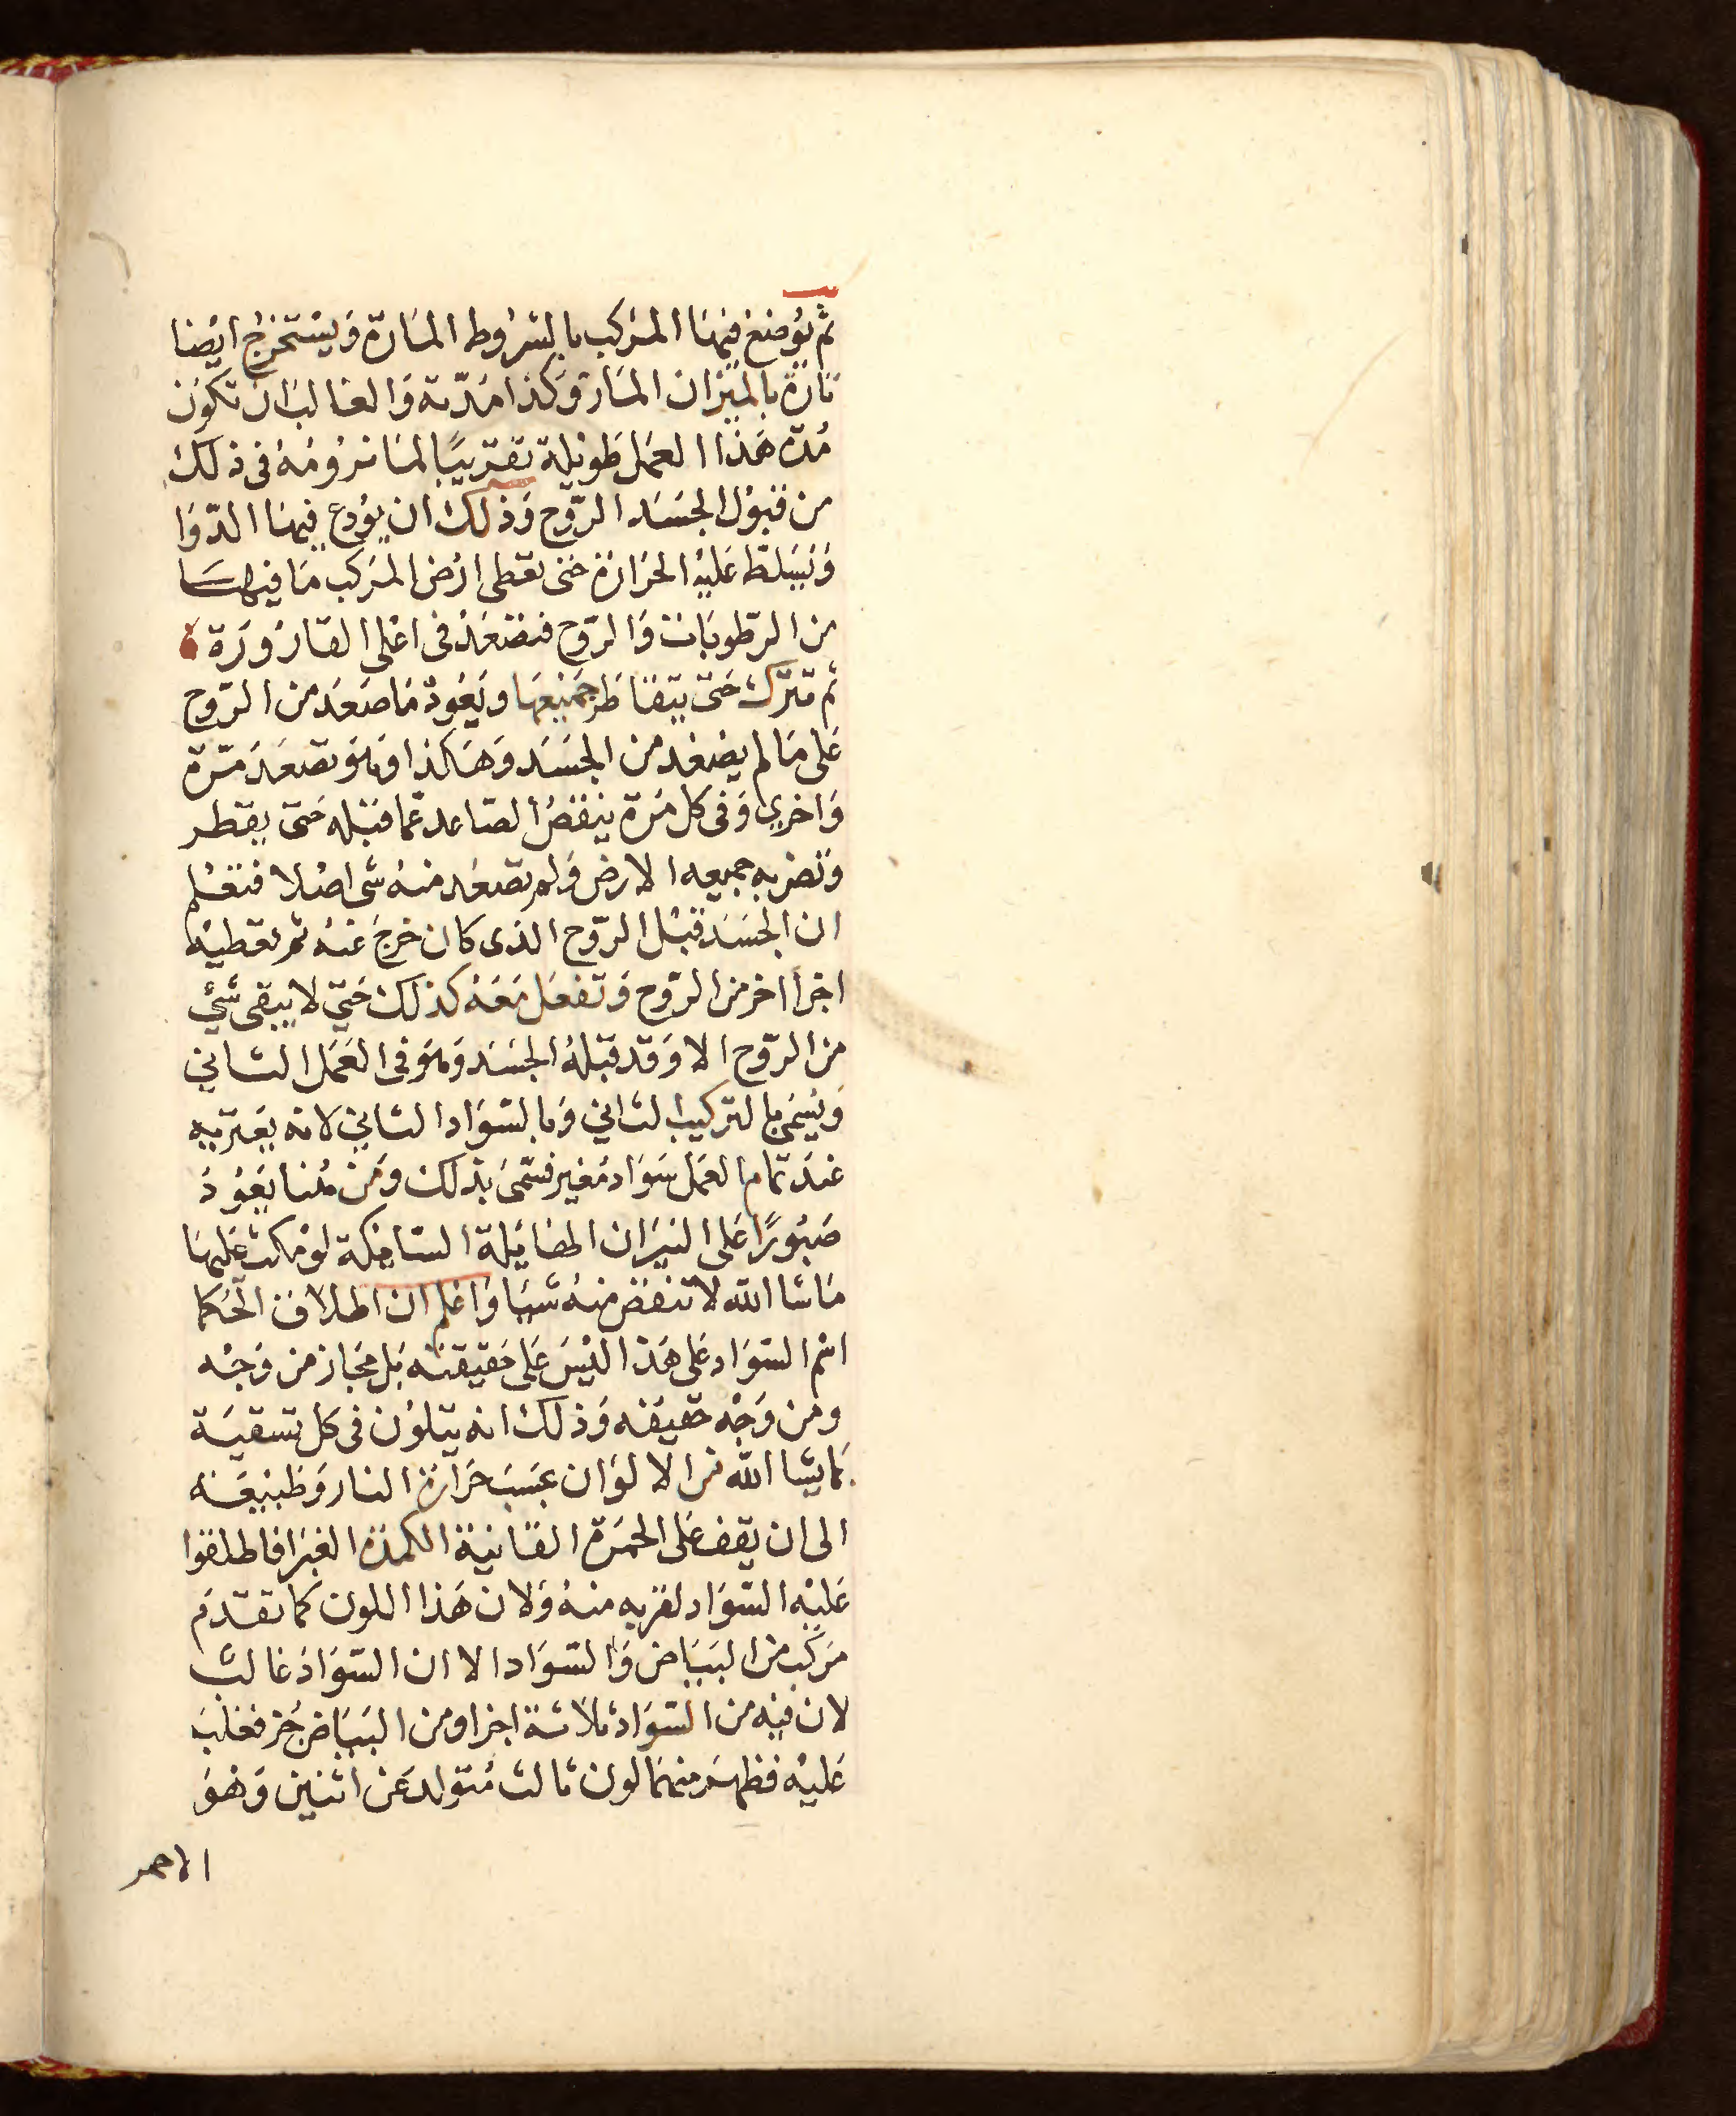 ثم يوضع فيها المركب بالشروط المارة ويستخرج ايضا
تارة بالميزان المارة وكذا مدته والغالب ان تكون
مدة هذا العمل طويلة تقريبا لما نرومه في ذلك
من قبول الجسد الروح وذلك ان يودع فيها الدوا
ويسلط عليه الحرارة حتى تعطى ارض المركب ما فيها
من الرطوبات والروح فتصعد فى اعلى القارورة
ثم تترك حتى يتقاطر جميعها ويعود ما صعد من الروح
على ما لم يصعد من الجسد وهكذا وهو تصعد مرة
واخرى وفى كل مرة ينقص الصاعد عما قبله حتى يقطر
وتضربه جميعه الارض ولم تصعد منه شى اصلا فتعلم
ان الجسد قبل الروح الذى كان خرج عنه ثم تعطيه
اجزا اخر من الروح وتفعل معه كذلك حتى لا يبقى شئ
من الروح الا وقد قبله الجسد وهو فى العمل الثانى
ويسمى بالتركيب الثانى وبالسواد الثانى لانه يعتريه
عند تمام العمل سواد مغير فسمى بذلك ومن هنا يعود
صبورا على النيران الهائلة السافكة لو مكث عليها
ماشا الله لا تنقص منه شيا واعلم ان اطلاق الحكما
اسم السواد على هذا ليس على حقيقته بل مجاز من وجه
ومن وجه حقيقه وذلك انه يتلون فى كل تسقية
بما يشا الله من الالوان بحسب حرارة النار وطبيعته
الى ان يقف على الحمرة القانية الكمدة الغبرا فاطلقوا
عليه السواد لقربه منه ولان هذا اللون كما تقدم
مركب من البياض والسواد الا ان السواد غالب
لان فيه من السواد ثلاثة اجزا ومن البياض جز فغلب
عليه فظهر منهما لون ثالث متولد عن اثنين وهو
الاحمر